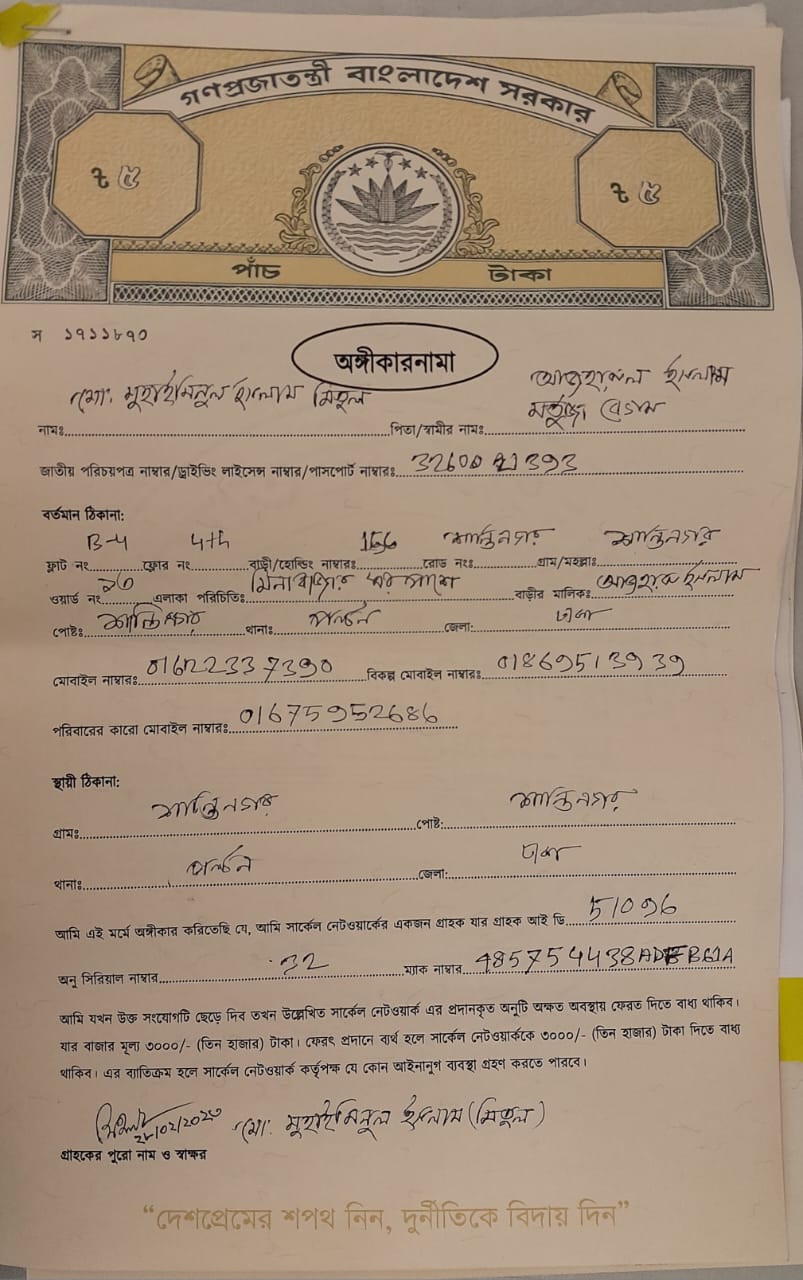 গণপ্রজাতন্ত্রী বাংলাদেশ সরকার
৳ ৫ ৳ ৫
পাঁচ টাকা
স ১৭১১৮৭০
অঙ্গীকারনামা
মো: মুহাইমিনুল ইসলাম মিতুল ইসলাম
বেগম
নামঃ পিতা/স্বামীর নামঃ
জাতীয় পরিচয়পত্র নাম্বার/ড্রাইভিং লাইসেন্স নাম্বার/পাসপোর্ট নাম্বারঃ
বর্তমান ঠিকানা:
B-4 4th 156 শান্তিনগর শান্তিনগর
ফ্লাট নং ফ্লোর নং বাড়ী/হোল্ডিং নাম্বারঃ রোড নংঃ গ্রাম/মহল্লাঃ
ওয়ার্ড নং এলাকা পরিচিতিঃ মিনা বাজার এর পাশে বাড়ীর মালিকঃ ইসলাম
পোষ্টঃ শান্তিনগর থানাঃ পল্টন জেলা: ঢাকা
মোবাইল নাম্বারঃ 01622337390 বিকল্প মোবাইল নাম্বারঃ 01869513939
পরিবারের কারো মোবাইল নাম্বারঃ 01675952686
স্থায়ী ঠিকানা:
গ্রামঃ শান্তিনগর পোষ্ট: শান্তিনগর
থানাঃ পল্টন জেলা: ঢাকা
আমি এই মর্মে অঙ্গীকার করিতেছি যে, আমি সার্কেল নেটওয়ার্কের একজন গ্রাহক যার গ্রাহক আই ডি 51096
অনু সিরিয়াল নাম্বার 32 ম্যাক নাম্বার
আমি যখন উক্ত সংযোগটি ছেড়ে দিব তখন উল্লেখিত সার্কেল নেটওয়ার্ক এর প্রদানকৃত অনুটি অক্ষত অবস্থায় ফেরত দিতে বাধ্য থাকিব।
যার বাজার মূল্য ৩০০০/- (তিন হাজার) টাকা। ফেরৎ প্রদানে ব্যর্থ হলে সার্কেল নেটওয়ার্ককে ৩০০০/- (তিন হাজার) টাকা দিতে বাধ্য
থাকিব। এর ব্যতিক্রম হলে সার্কেল নেটওয়ার্ক কর্তৃপক্ষ যে কোন আইনানুগ ব্যবস্থা গ্রহণ করতে পারবে।
মো: মুহাইমিনুল ইসলাম (মিতুল)
গ্রাহকের পুরো নাম ও স্বাক্ষর
“দেশপ্রেমের শপথ নিন, দুর্নীতিকে বিদায় দিন”